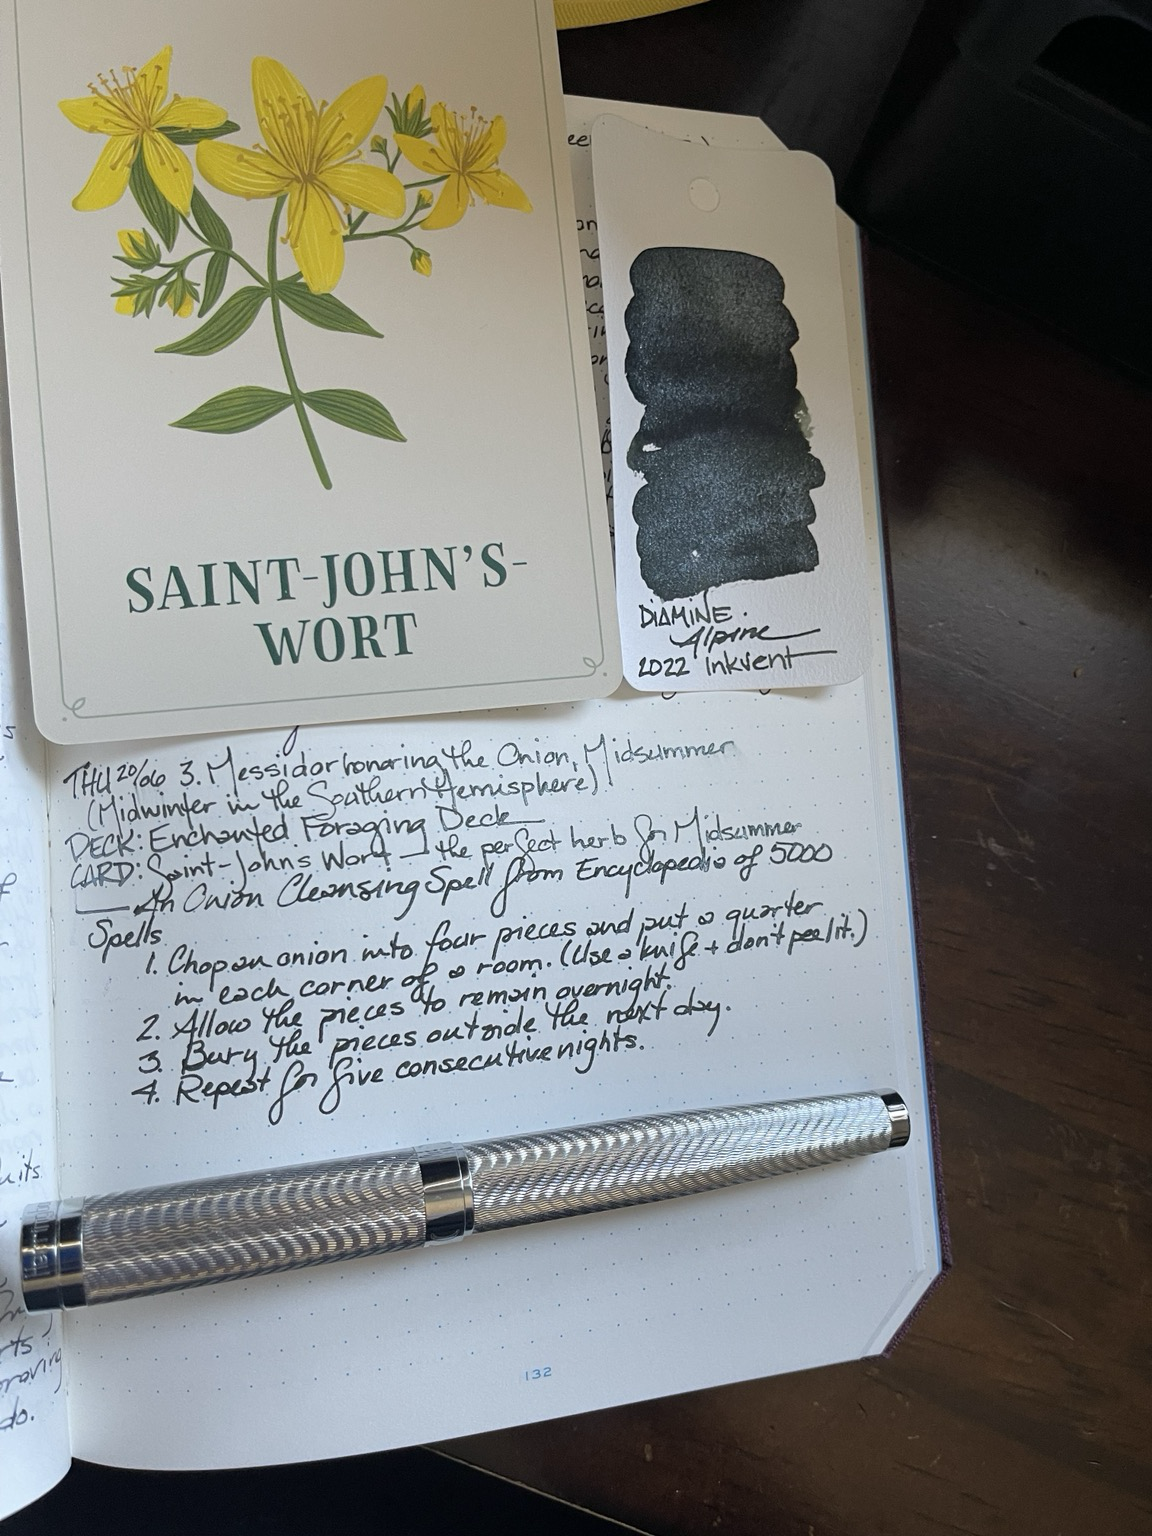 SAINT-JOHN'S-
WORT
DIAMINE.
Alpine
2022 Inkvent
THU 20/06 3. Messidor honoring the Onion, Midsummer
(Midwinter in the Southern Hemisphere)
DECK: Enchanted Foraging Deck
CARD: Saint-Johns Wort – the perfect herb for Midsummer
An Onion Cleansing Spell from Encyclopedia of 5000
Spells
1. Chop an onion into four pieces and put a quarter
in each corner of a room. (Use a knife + don't peel it.)
2. Allow the pieces to remain overnight.
3. Bury the pieces outside the next day.
4. Repeat for five consecutive nights.
132
do.